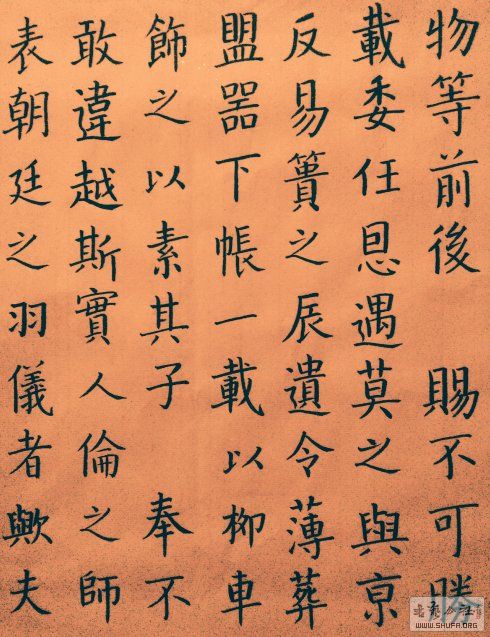 物等前後 賜不可勝
載委任恩遇莫之與亰
反易簣之辰遺令薄葬
盟器下帳一載以柳車
飾之以素其子 奉不
敢違越斯實人倫之師
表朝廷之羽儀者歟夫
WWW.SHUFA.ORG